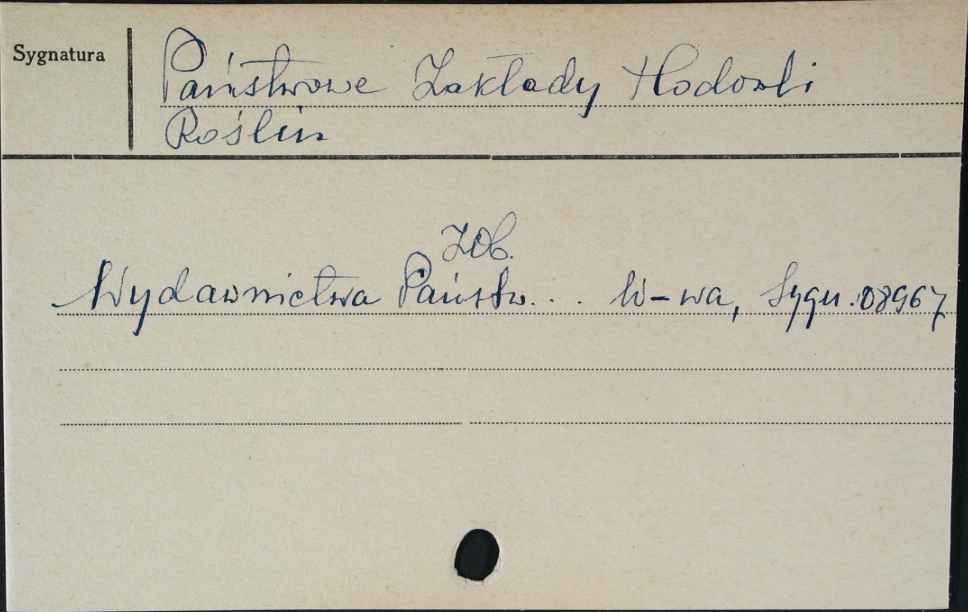 Sygnatura
Państwowe Zakłady Hodowli
Roślin
Zob.
Wydawnictwa Państw... W-wa, Sygn. 08967